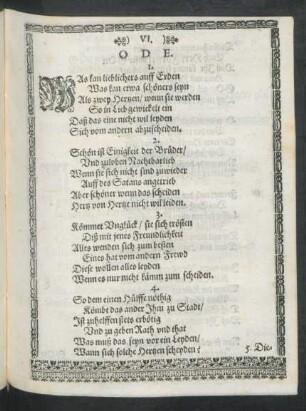 VI.
ODE.
1.
WAs kan lieblichers auff Erden
Was kan etwa schöners seyn
Als zwey Hertzen/ wenn sie werden
So in Lieb gewickelt ein
Daß das eine nicht wil leyden
Sich vom andern abzuscheiden.
2.
Schön ist Einigkeit der Brüder/
Vnd zuloben Nachtbarlieb
Wenn sie sich nicht sind zuwieder
Auff des Satans angetrieb
Aber schöner wenn das scheiden
Hertz von Hertze nicht wil leiden.
3.
Kömmet Vnglück/ sie sich trösten
Diß mit jenes Freundlichkeit
Alles wenden sich zum besten
Eines hat vom andern Frewd
Diese wollen alles leyden
Wenn es nur nicht kämm zum scheiden.
4.
So dem einen Hülffe nöthig
Kömbt das ander Ihm zu Stadt/
Ist zuhelffen stets erbötig
Vnd zu geben Rath vnd that
Was muß das seyn vor ein Leyden/
Wann sich solche Hertzen scheyden?
5. Die-